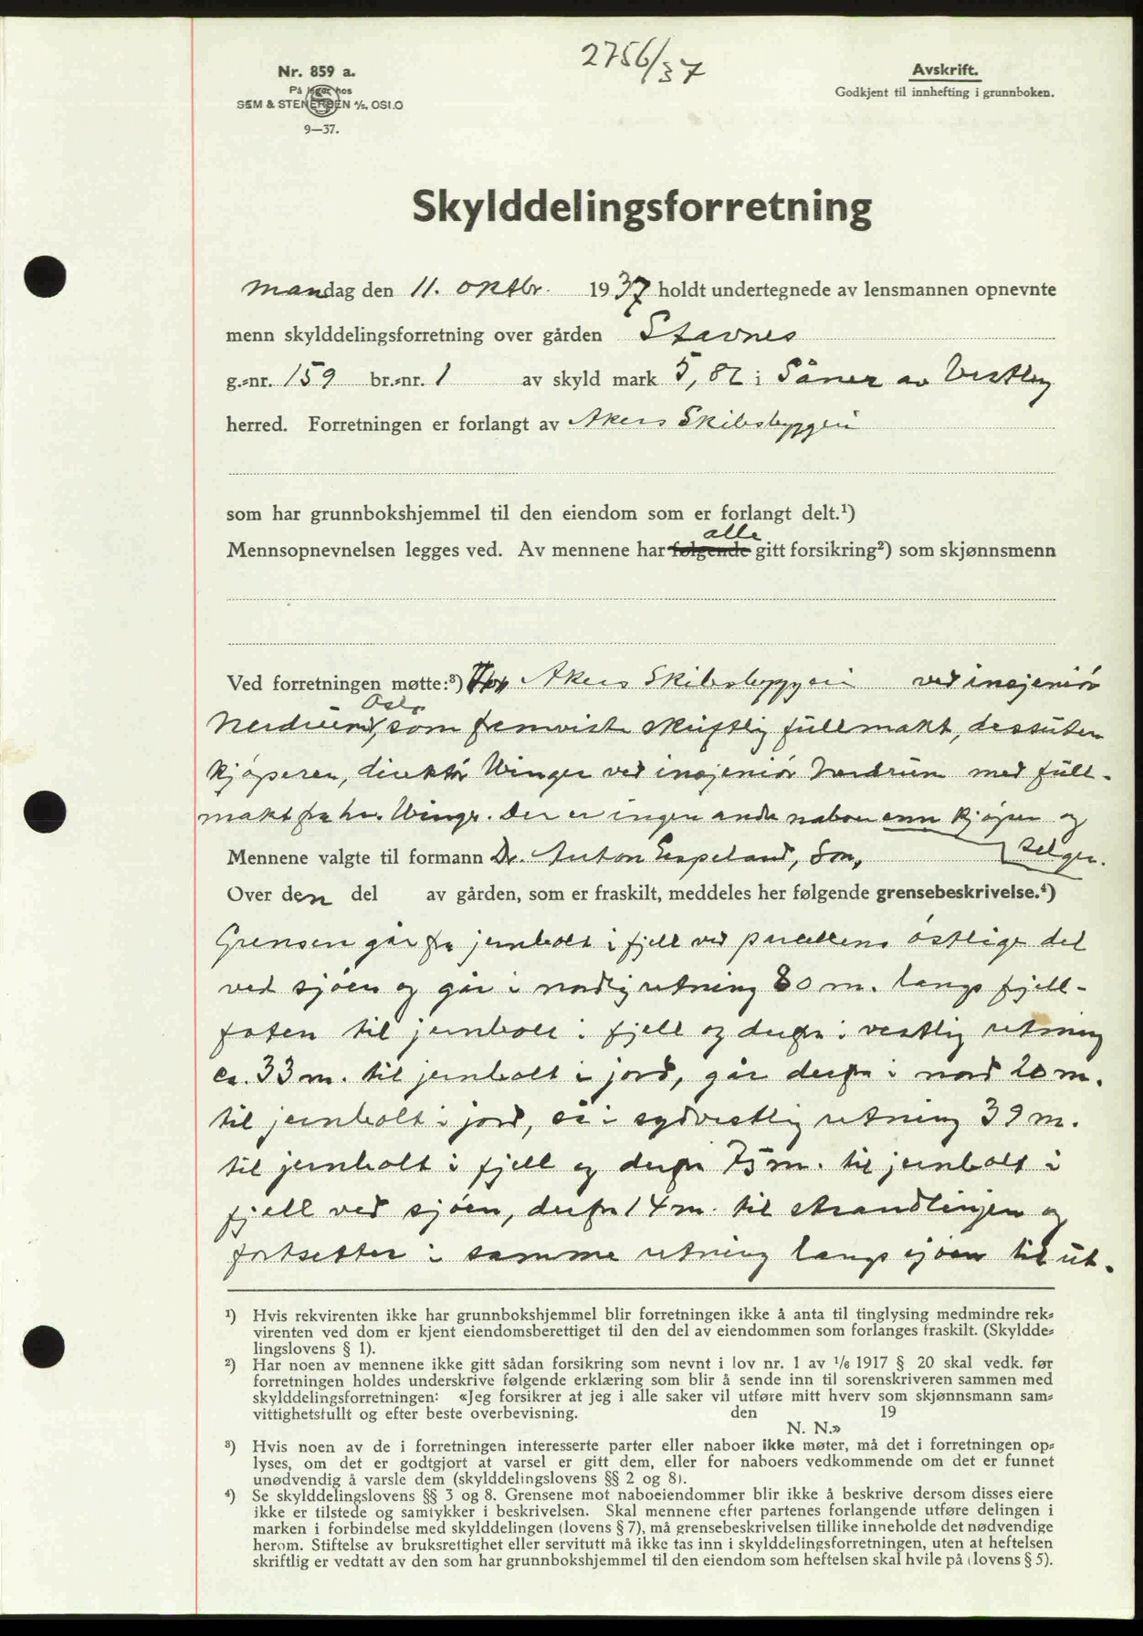 2756/37
Nr. 859 a.
På lager hos
SEM & STENERSEN A/S, OSLO
9—37.
Avskrift.
Godkjent til innhefting i grunnboken.
Skylddelingsforretning
Mandag den 11. oktbr. 1937 holdt undertegnede av lensmannen opnevnte
menn skylddelingsforretning over gården Stavnes
g.-nr. 159 br.-nr. 1 av skyld mark 5,82 i Såner av Vestby
herred. Forretningen er forlangt av Akers Skibsbyggeri
som har grunnbokshjemmel til den eiendom som er forlangt delt.¹)
alle
Mennsopnevnelsen legges ved. Av mennene har følgende gitt forsikring²) som skjønnsmenn
Ved forretningen møtte:³) For Akers Skibsbyggeri ved insjeniör
Oslo
Nerdrum, som fremviste skriftlig fullmakt, dessuten
kjöperen, direktör Winger ved insjeniör Nerdrum med full-
makt fra hr. Winge. Der er ingen andre naboer enn kjöper og
selger.
Mennene valgte til formann Dr. Anton Espeland, Son,
Over den del av gården, som er fraskilt, meddeles her følgende grensebeskrivelse.⁴)
Grensen går fra jernbolt i fjell ved parcellens östlige del
ved sjöen og går i nordlig retning 80 m. langs fjell-
foten til jernbolt i fjell og derfra i vestlig retning
ca. 33 m. til jernbolt i jord, går derfra i nord 20 m.
til jernbolt i jord, så i sydvestlig retning 39 m.
til jernbolt i fjell og derfra 75 m. til jernbolt i
fjell ved sjöen, derfra 14 m. til strandlinjen og
fortsetter i samme retning langs sjöen til ut-
¹) Hvis rekvirenten ikke har grunnbokshjemmel blir forretningen ikke å anta til tinglysing medmindre rek-
virenten ved dom er kjent eiendomsberettiget til den del av eiendommen som forlanges fraskilt. (Skyldde-
lingslovens § 1).
²) Har noen av mennene ikke gitt sådan forsikring som nevnt i lov nr. 1 av 1/6 1917 § 20 skal vedk. før
forretningen holdes underskrive følgende erklæring som blir å sende inn til sorenskriveren sammen med
skylddelingsforretningen: «Jeg forsikrer at jeg i alle saker vil utføre mitt hverv som skjønnsmann sam-
vittighetsfullt og efter beste overbevisning. den 19
N. N.»
³) Hvis noen av de i forretningen interesserte parter eller naboer ikke møter, må det i forretningen op-
lyses, om det er godtgjort at varsel er gitt dem, eller for naboers vedkommende om det er funnet
unødvendig å varsle dem (skylddelingslovens §§ 2 og 8).
⁴) Se skylddelingslovens §§ 3 og 8. Grensene mot naboeiendommer blir ikke å beskrive dersom disses eiere
ikke er tilstede og samtykker i beskrivelsen. Skal mennene efter partenes forlangende utføre delingen i
marken i forbindelse med skylddelingen (lovens § 7), må grensebeskrivelsen tillike inneholde det nødvendige
herom. Stiftelse av bruksrettighet eller servitutt må ikke tas inn i skylddelingsforretningen, uten at heftelsen
skriftlig er vedtatt av den som har grunnbokshjemmel til den eiendom som heftelsen skal hvile på (lovens § 5).